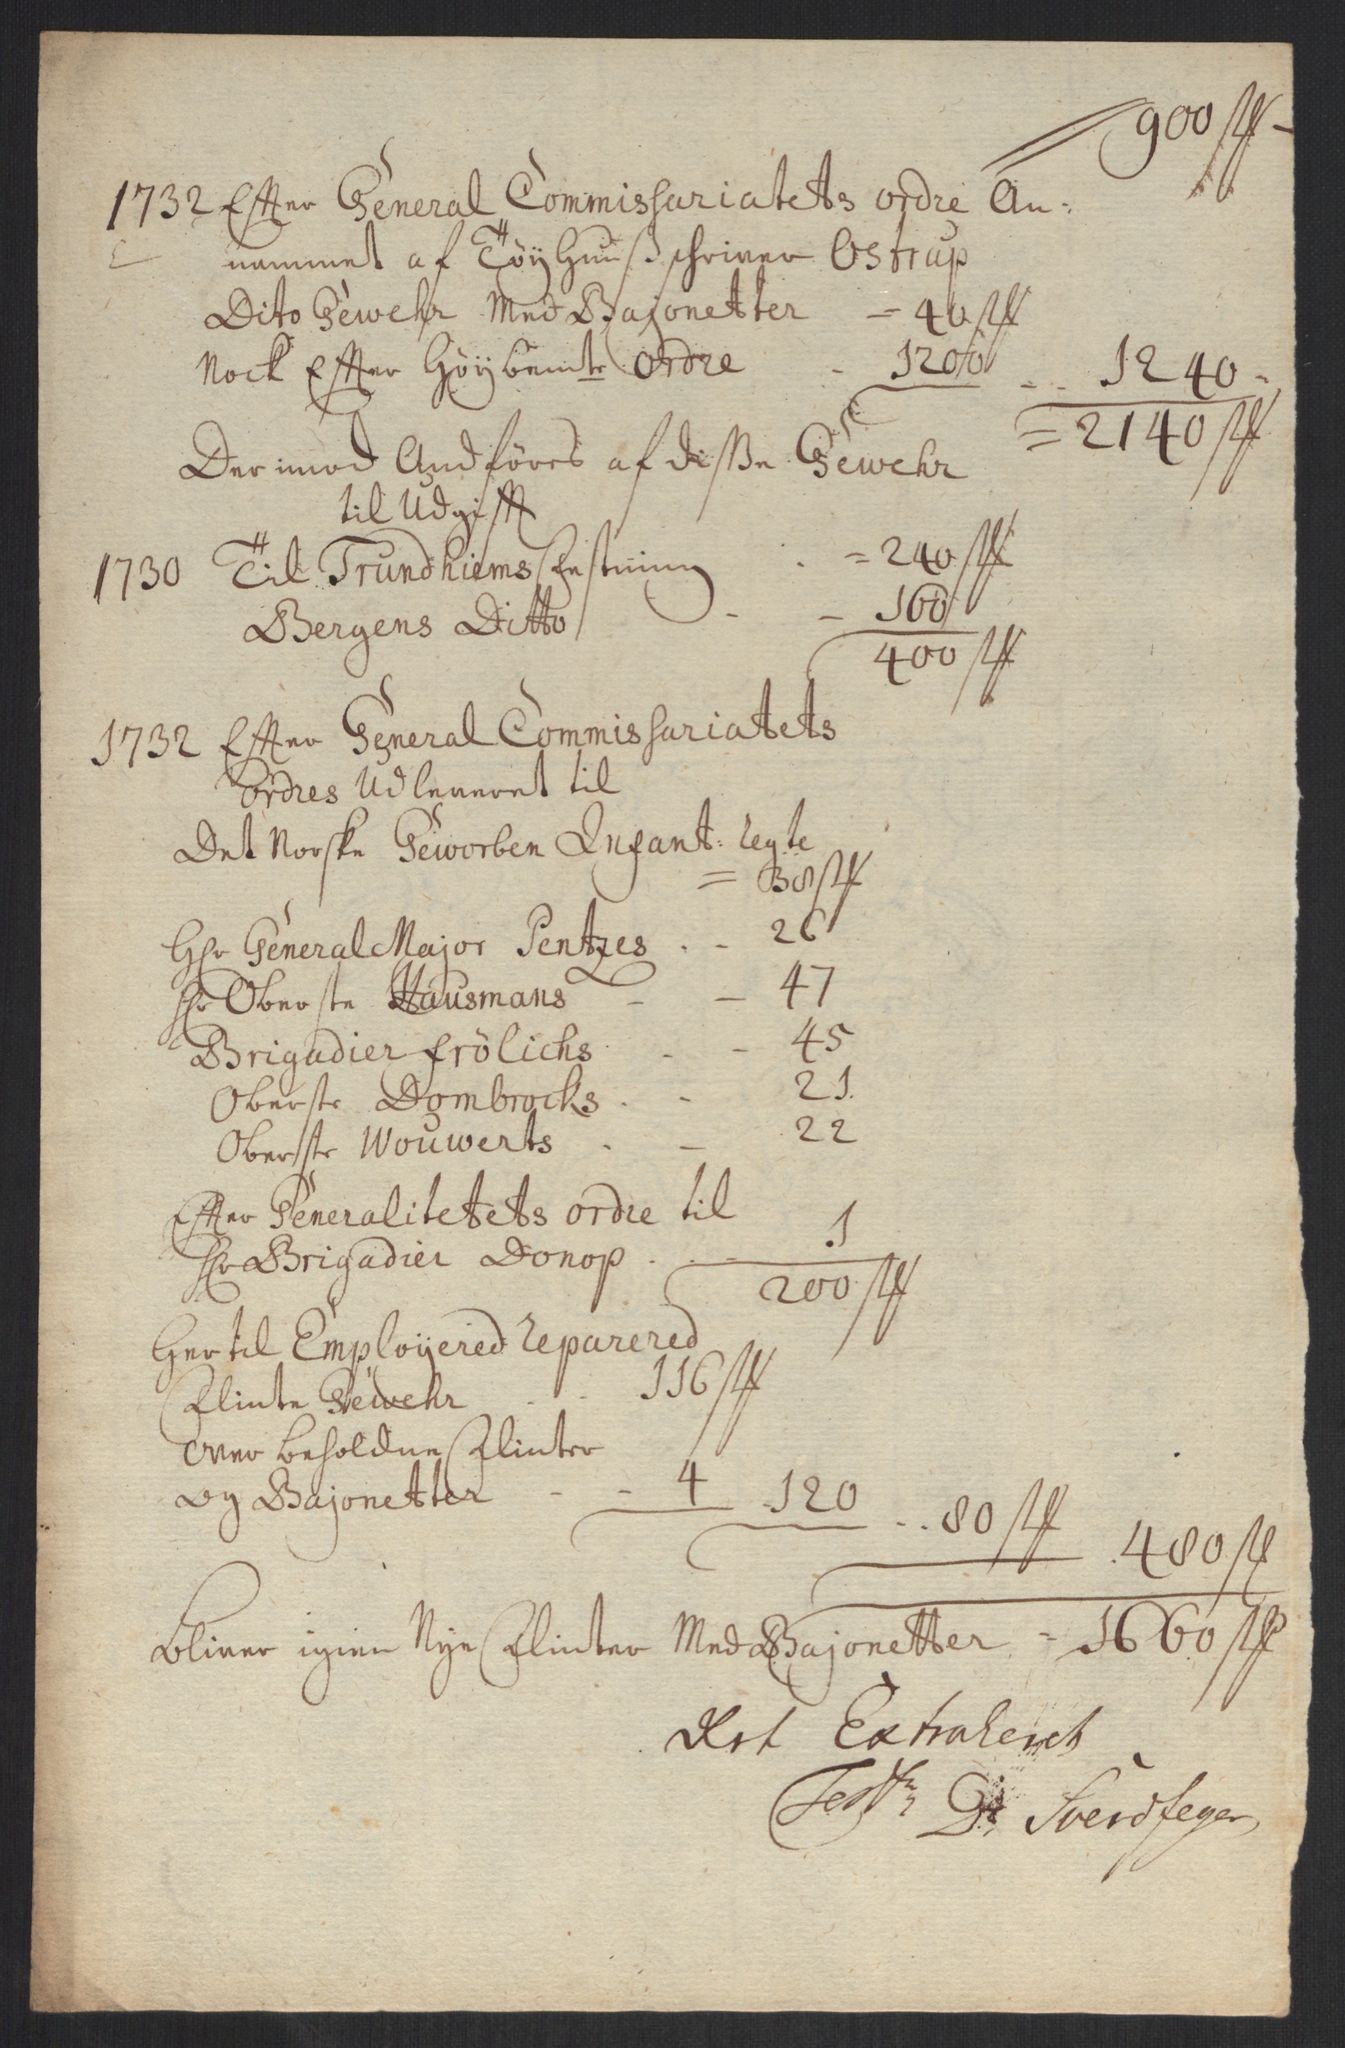 900 st
1732 Effter General Commissariatets ordre An=
nammet af Töÿhuuß schriver Ostrup
Dito Gewehr Med Bajonetter = 40 st
Nock Effter Höÿbemte Ordre - 1200 - 1240 -
= 2140 st
Der imod Andföres af disse Gewehr
til Udgifft
1730 Til Trundhiems Festning = 240 st
Bergens Ditto - - 160
400 st
1732 Effter General Commissariatets
Ordres Udleveret til
Det Norske Geworben Infant: Regte
= 38 st
Hr General Major Pentzes - - 26
Hr Oberste Hausmans - - 47
Brigadier Frölichs - - 45
Oberste Dombrocks - - 21
Oberste Wouwerts - - 22
Effter Generalitetets ordre til
Hr Brigadier Donop - - 1
200 st
Her til Employered reparered
Flinte Gewehr - - 116 st
over beholdne Flinter
og Bajonetter - - 4 120 - 80 st 480 st
bliver igien Nye Flinter Med Bajonetter - 1660 st
Extraheret
Sverdfeger